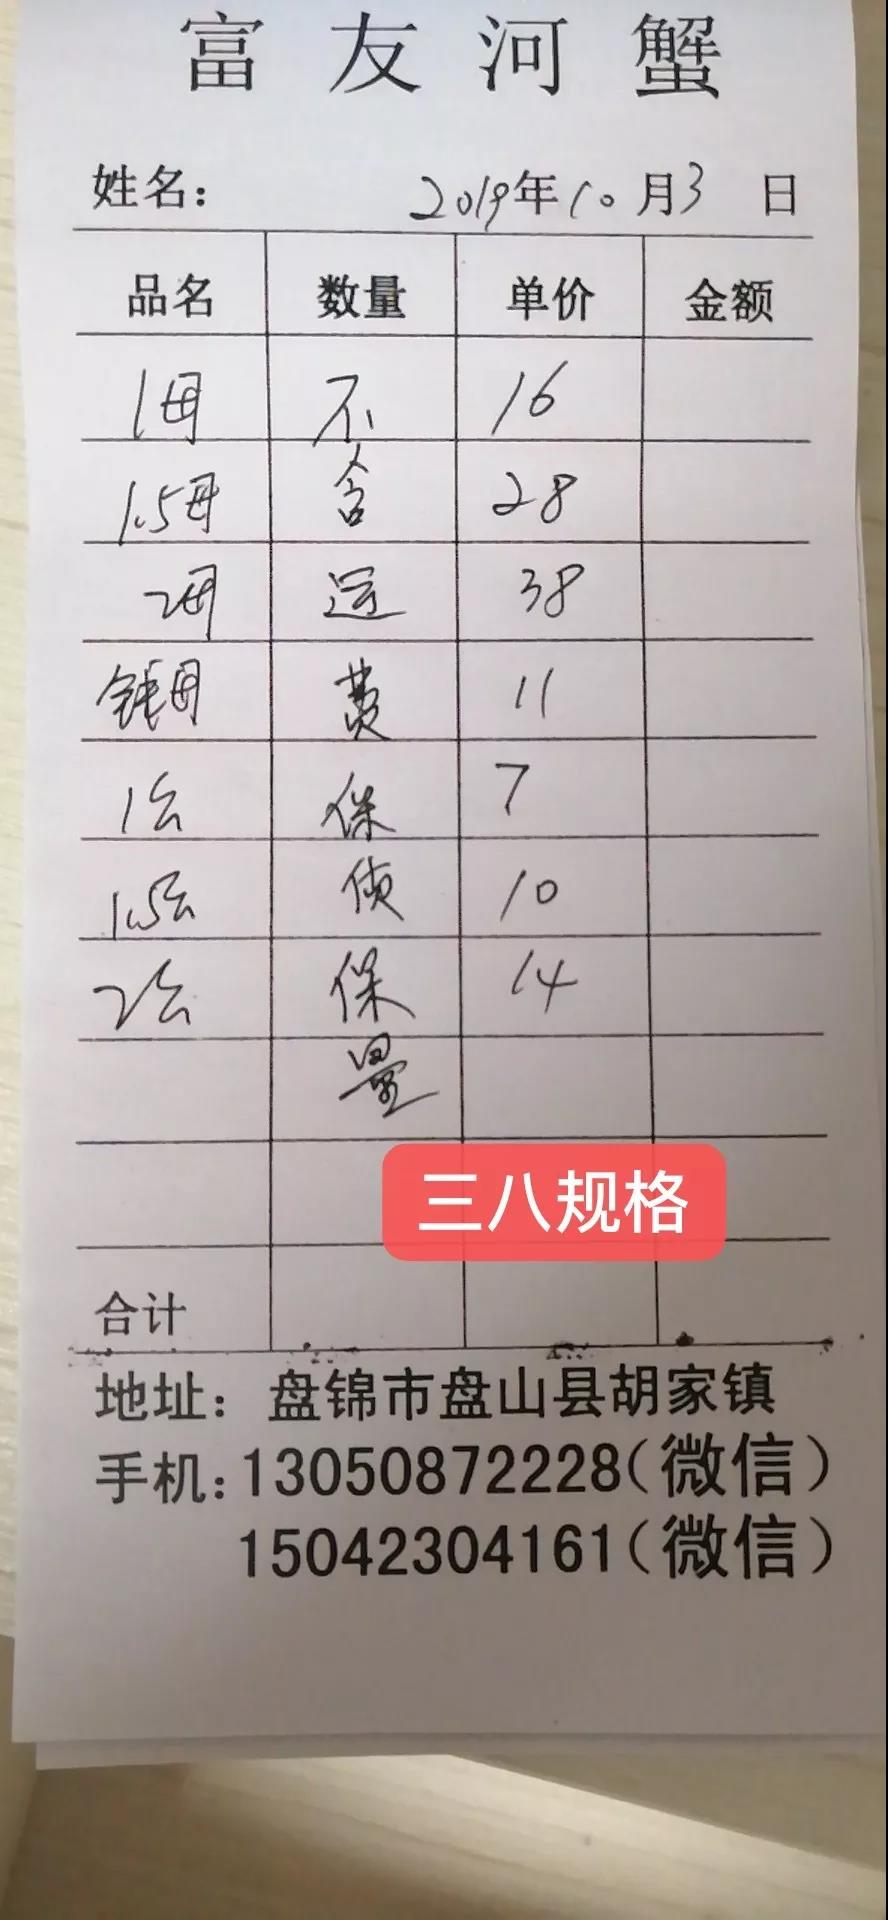 富友河蟹
姓名： 2019年10月3日
品名 数量 单价 金额
1母 不 16
1.5母 含 28
2母 运 38
钱母 费 11
1公 保 7
1.5公 质 10
2公 保 14
量
三八规格
合计
地址：盘锦市盘山县胡家镇
手机：13050872228（微信）
15042304161（微信）